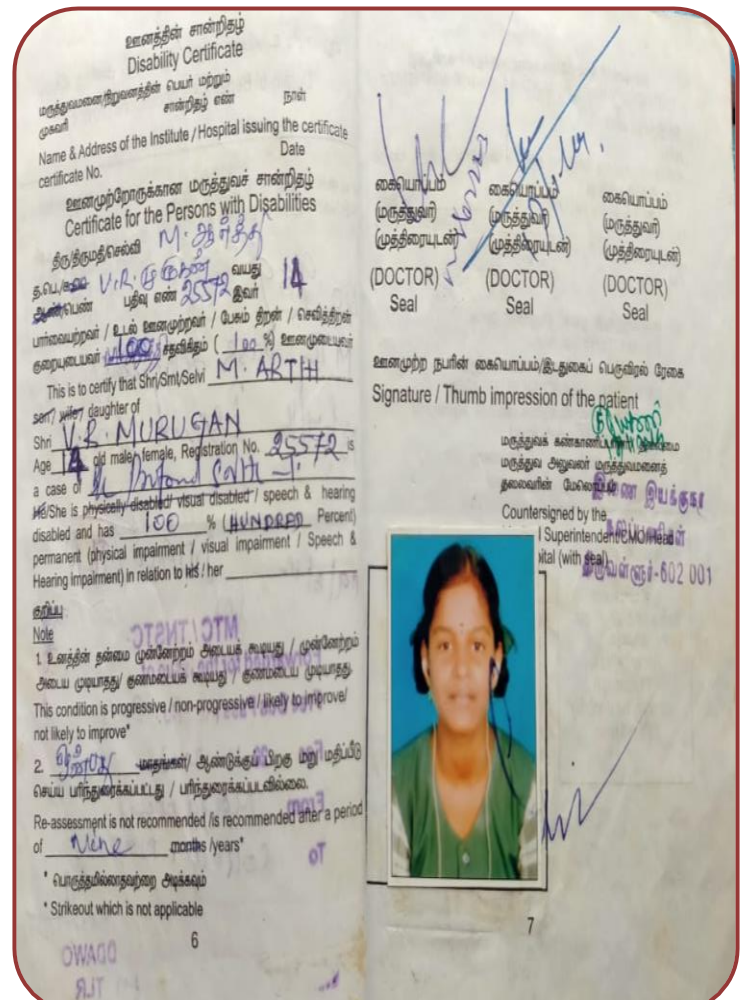 ஊனத்தின் சான்றிதழ்
Disability Certificate
மருத்துவமனை/நிறுவனத்தின் பெயர் மற்றும்
முகவரி சான்றிதழ் எண் நாள்
Name & Address of the Institute / Hospital issuing the certificate
certificate No. Date
ஊனமுற்றோருக்கான மருத்துவச் சான்றிதழ்
Certificate for the Persons with Disabilities
திரு/திருமதி/செல்வி M. ஆர்த்தி
த.பெ./ V.R. முருகன் வயது 14
ஆண்/பெண் பதிவு எண் 25572 இவர்
பார்வையற்றவர் / உடல் ஊனமுற்றவர் / பேசும் திறன் / செவித்திறன்
குறையுடையவர் 100 சதவிகிதம் ( 100 %) ஊனமுடையவர்
This is to certify that Shri/Smt/Selvi M. ARTHI
son/ wife/ daughter of
Shri V.R. MURUGAN
Age 14 old male/ female, Registration No. 25572 is
a case of
He/She is physically disabled/ visual disabled / speech & hearing
disabled and has 100 % (HUNDRED Percent)
permanent (physical impairment / visual impairment / Speech &
Hearing impairment) in relation to his / her
குறிப்பு
Note
1. உனத்தின் தன்மை முன்னேற்றம் அடையக் கூடியது / முன்னேற்றம்
அடைய முடியாதது/ குணமடையக் கூடியது / குணமடைய முடியாதது.
This condition is progressive / non-progressive / likely to improve/
not likely to improve*
2. மாதங்கள்/ ஆண்டுக்குப் பிறகு மறு மதிப்பீடு
செய்ய பரிந்துரைக்கப்பட்டது / பரிந்துரைக்கப்படவில்லை.
Re-assessment is not recommended /is recommended after a period
of Nine months /years*
* பொருத்தமில்லாதவற்றை அடிக்கவும்
* Strikeout which is not applicable
6
கையொப்பம் கையொப்பம் கையொப்பம்
(மருத்துவர்) (மருத்துவர்) (மருத்துவர்)
(முத்திரையுடன்) (முத்திரையுடன்) (முத்திரையுடன்)
(DOCTOR) (DOCTOR) (DOCTOR)
Seal Seal Seal
ஊனமுற்ற நபரின் கையொப்பம்/இடதுகைப் பெருவிரல் ரேகை
Signature / Thumb impression of the patient
மருத்துவக்
மருத்துவ அலுவலர் மருத்துவமனைத்
தலைவரின் மேலொப்பம்
இணை இயக்குநர்
Countersigned by the
Superintendent/CMO/Head
ital (with seal)
நலப்பணிகள்
திருவள்ளூர்-602 001
7